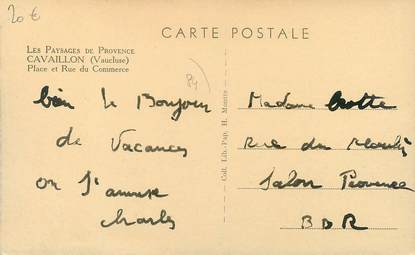 20 €
CARTE POSTALE
LES PAYSAGES DE PROVENCE
CAVAILLON (Vaucluse)
Place et Rue du Commerce
84)
bien le Bonjour
de Vacances
on s'amuse
Charles
Coll. Lib.-Pap. H.
Madame
Rue du
Salon Provence
B D R